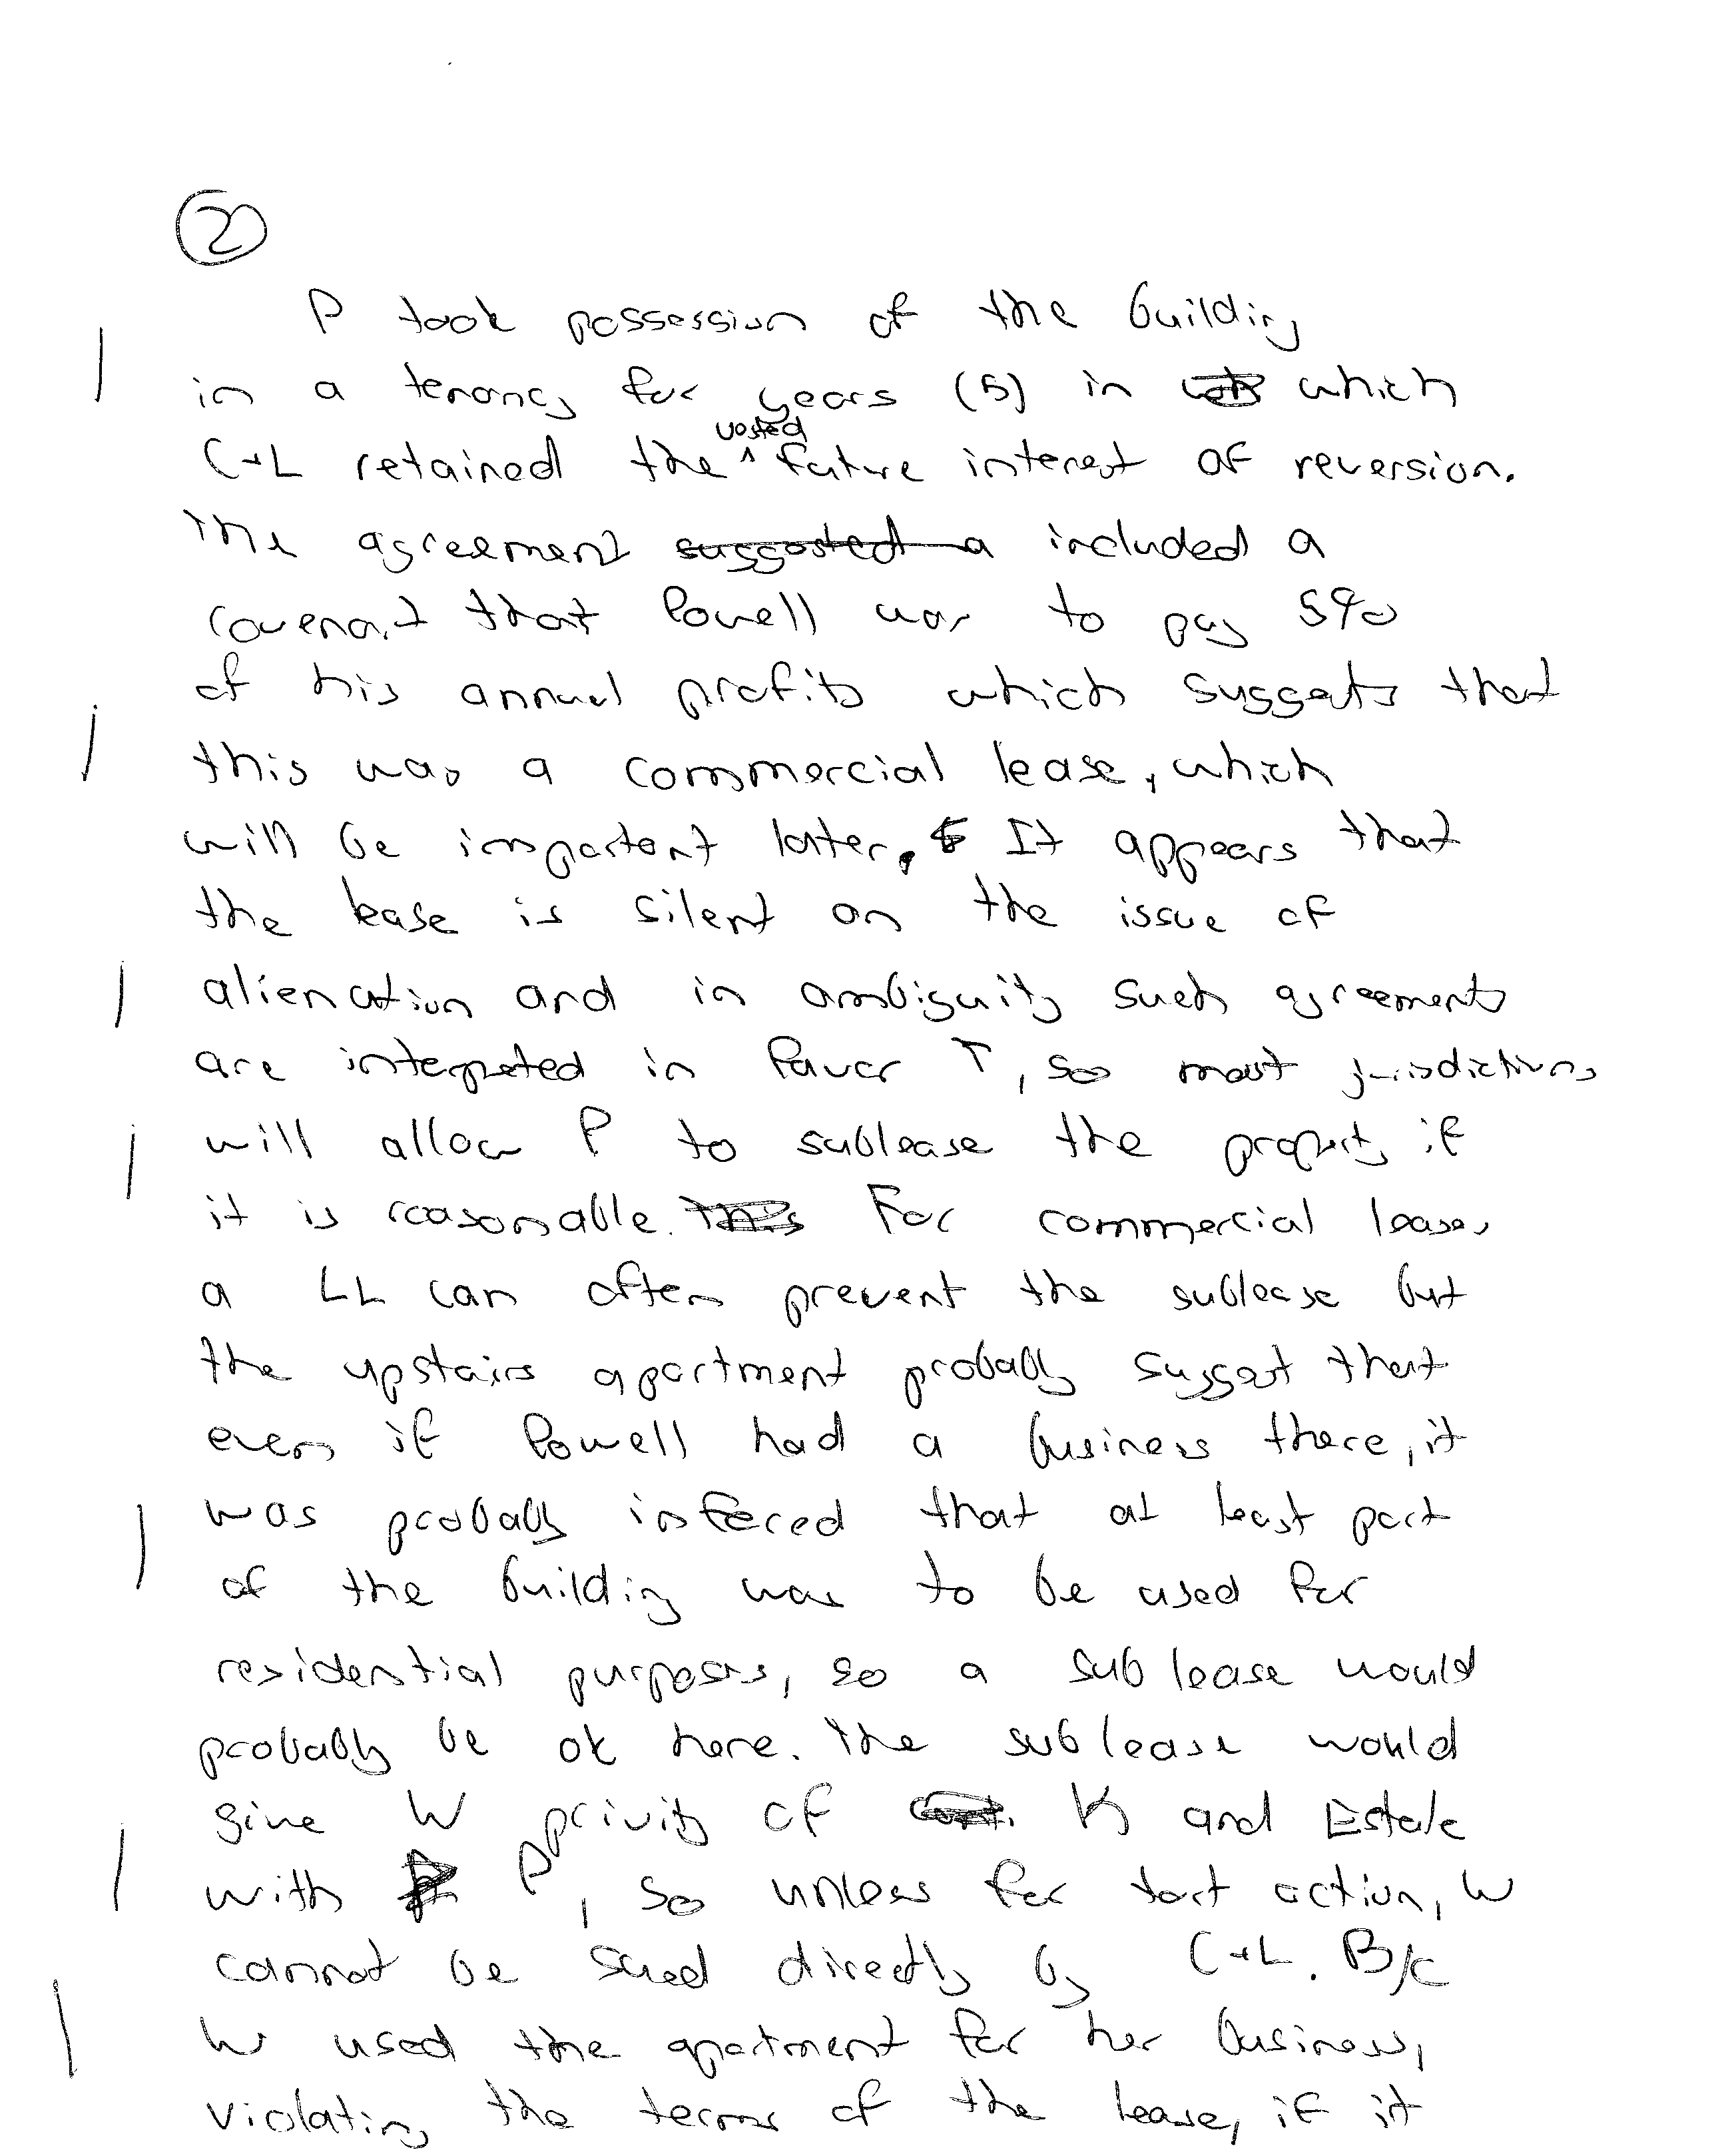 2
P took possession of the building
in a tenancy for years (5) in which
C+L retained the vested future interest of reversion.
The agreement suggested a included a
covenant that Powell was to pay 5%
of his annual profits which suggests that
this was a commercial lease, which
will be important later. It appears that
the lease is silent on the issue of
alienation and in ambiguity such agreements
are interpreted in favor T, so most jurisdictions
will allow P to sublease the property if
it is reasonable. This For commercial leases
a LL can often prevent the sublease but
the upstairs apartment probably suggest that
even if Powell had a business there, it
was probably infered that at least part
of the building was to be used for
residential purposes, so a sublease would
probably be ok here. The sublease would
give W privity of Cont. K and Estate
with P, so unless for tort action, W
cannot be sued directly by C+L. B/c
W used the apartment for her business,
violating the terms of the lease, if it